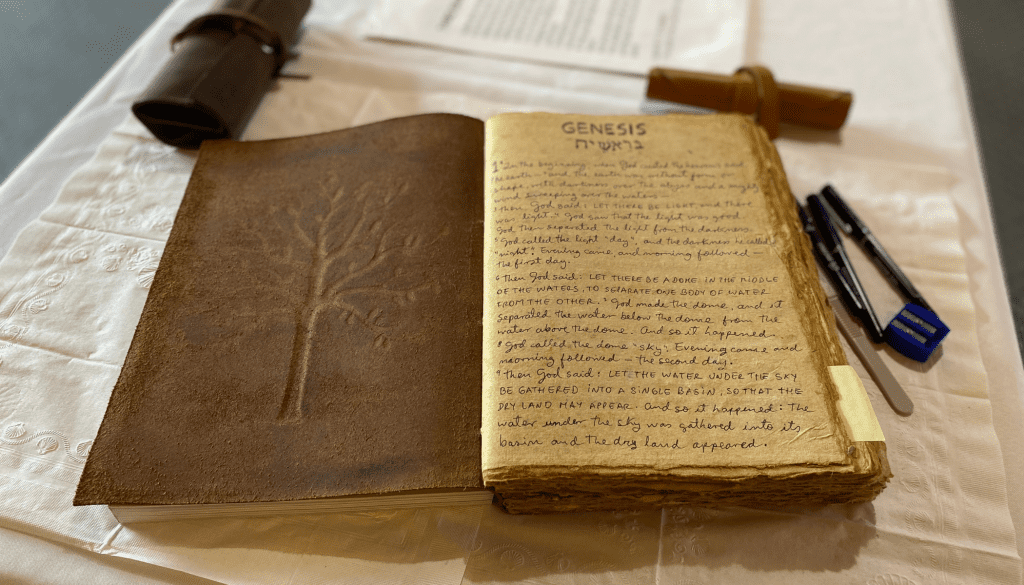 GENESIS
בראשית
1 ¹In the beginning, when God created the heavens and
the earth – ²and the earth was without form or
shape, with darkness over the abyss and a mighty
wind sweeping over the waters –
³Then God said: LET THERE BE LIGHT, and there
was light. ⁴God saw that the light was good.
God then separated the light from the darkness.
⁵God called the light "day", and the darkness he called
"night". Evening came, and morning followed –
the first day.
⁶Then God said: LET THERE BE A DOME IN THE MIDDLE
OF THE WATERS, TO SEPARATE ONE BODY OF WATER
FROM THE OTHER. ⁷God made the dome, and it
separated the water below the dome from the
water above the dome. And so it happened.
⁸God called the dome "sky". Evening came and
morning followed – the second day.
⁹Then God said: LET THE WATER UNDER THE SKY
BE GATHERED INTO A SINGLE BASIN, SO THAT THE
DRY LAND MAY APPEAR. And so it happened: The
water under the sky was gathered into its
basin and the dry land appeared.